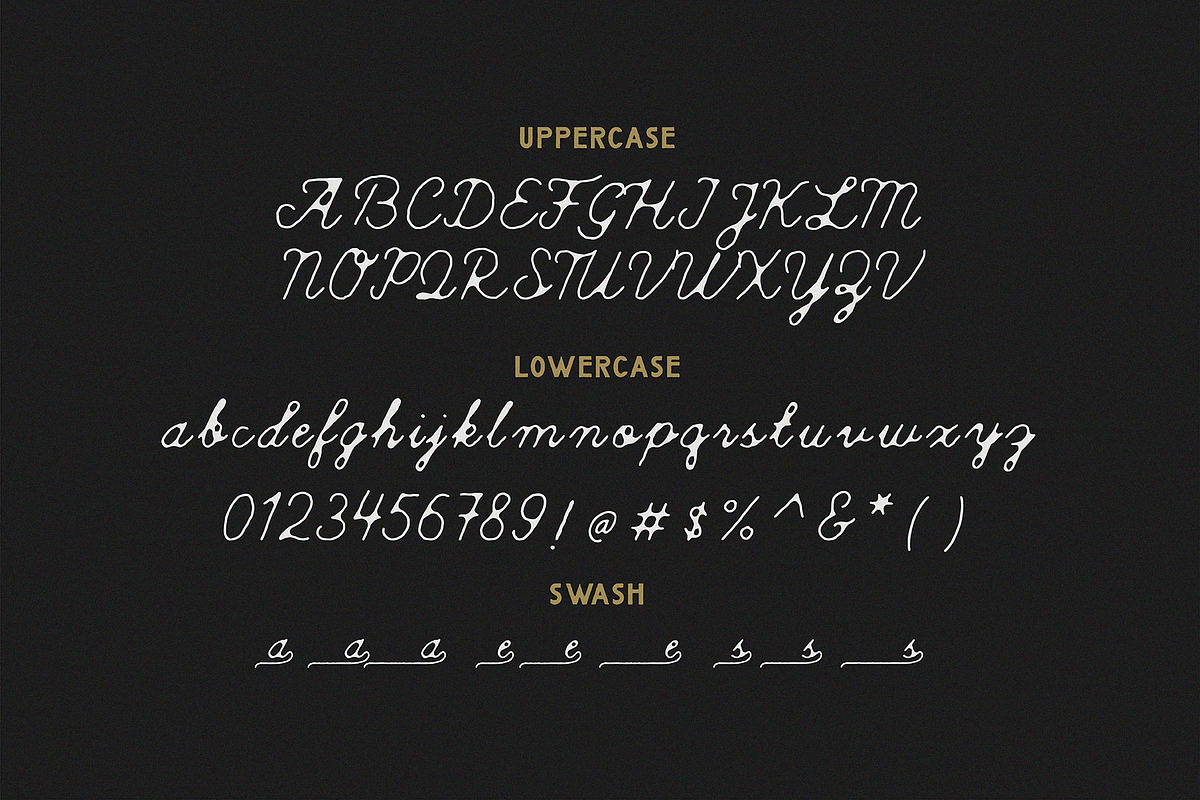 UPPERCASE
ABCDEFGHIJKLM
NOPQRSTUVWXYZV
LOWERCASE
abcdefghijklmnopqrstuvwxyz
0123456789!@#$%^&*()
SWASH
a a a e e e s s s